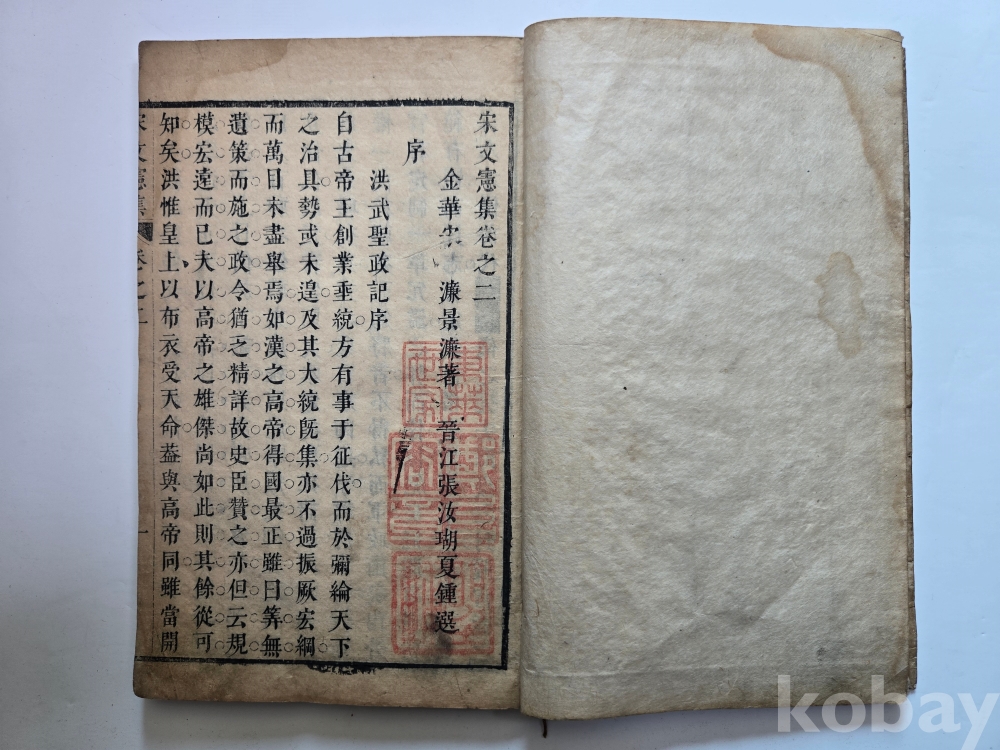 宋文憲集卷之二
金華宋 濂景濂著 晉江張汝瑚夏鍾選
序
洪武聖政記序
自古帝王創業垂統方有事于征伐而於彌綸天下
之治具勢或未遑及其大統旣集亦不過振厥宏綱
而萬目未盡舉焉如漢之高帝得國最正雖曰筭無
遺策而施之政令猶乏精詳故史臣贊之亦但云規
模宏遠而已夫以高帝之雄傑尚如此則其餘從可
知矣洪惟皇上以布衣受天命葢與高帝同雖當開
宋文憲集 卷之二 一
kobay